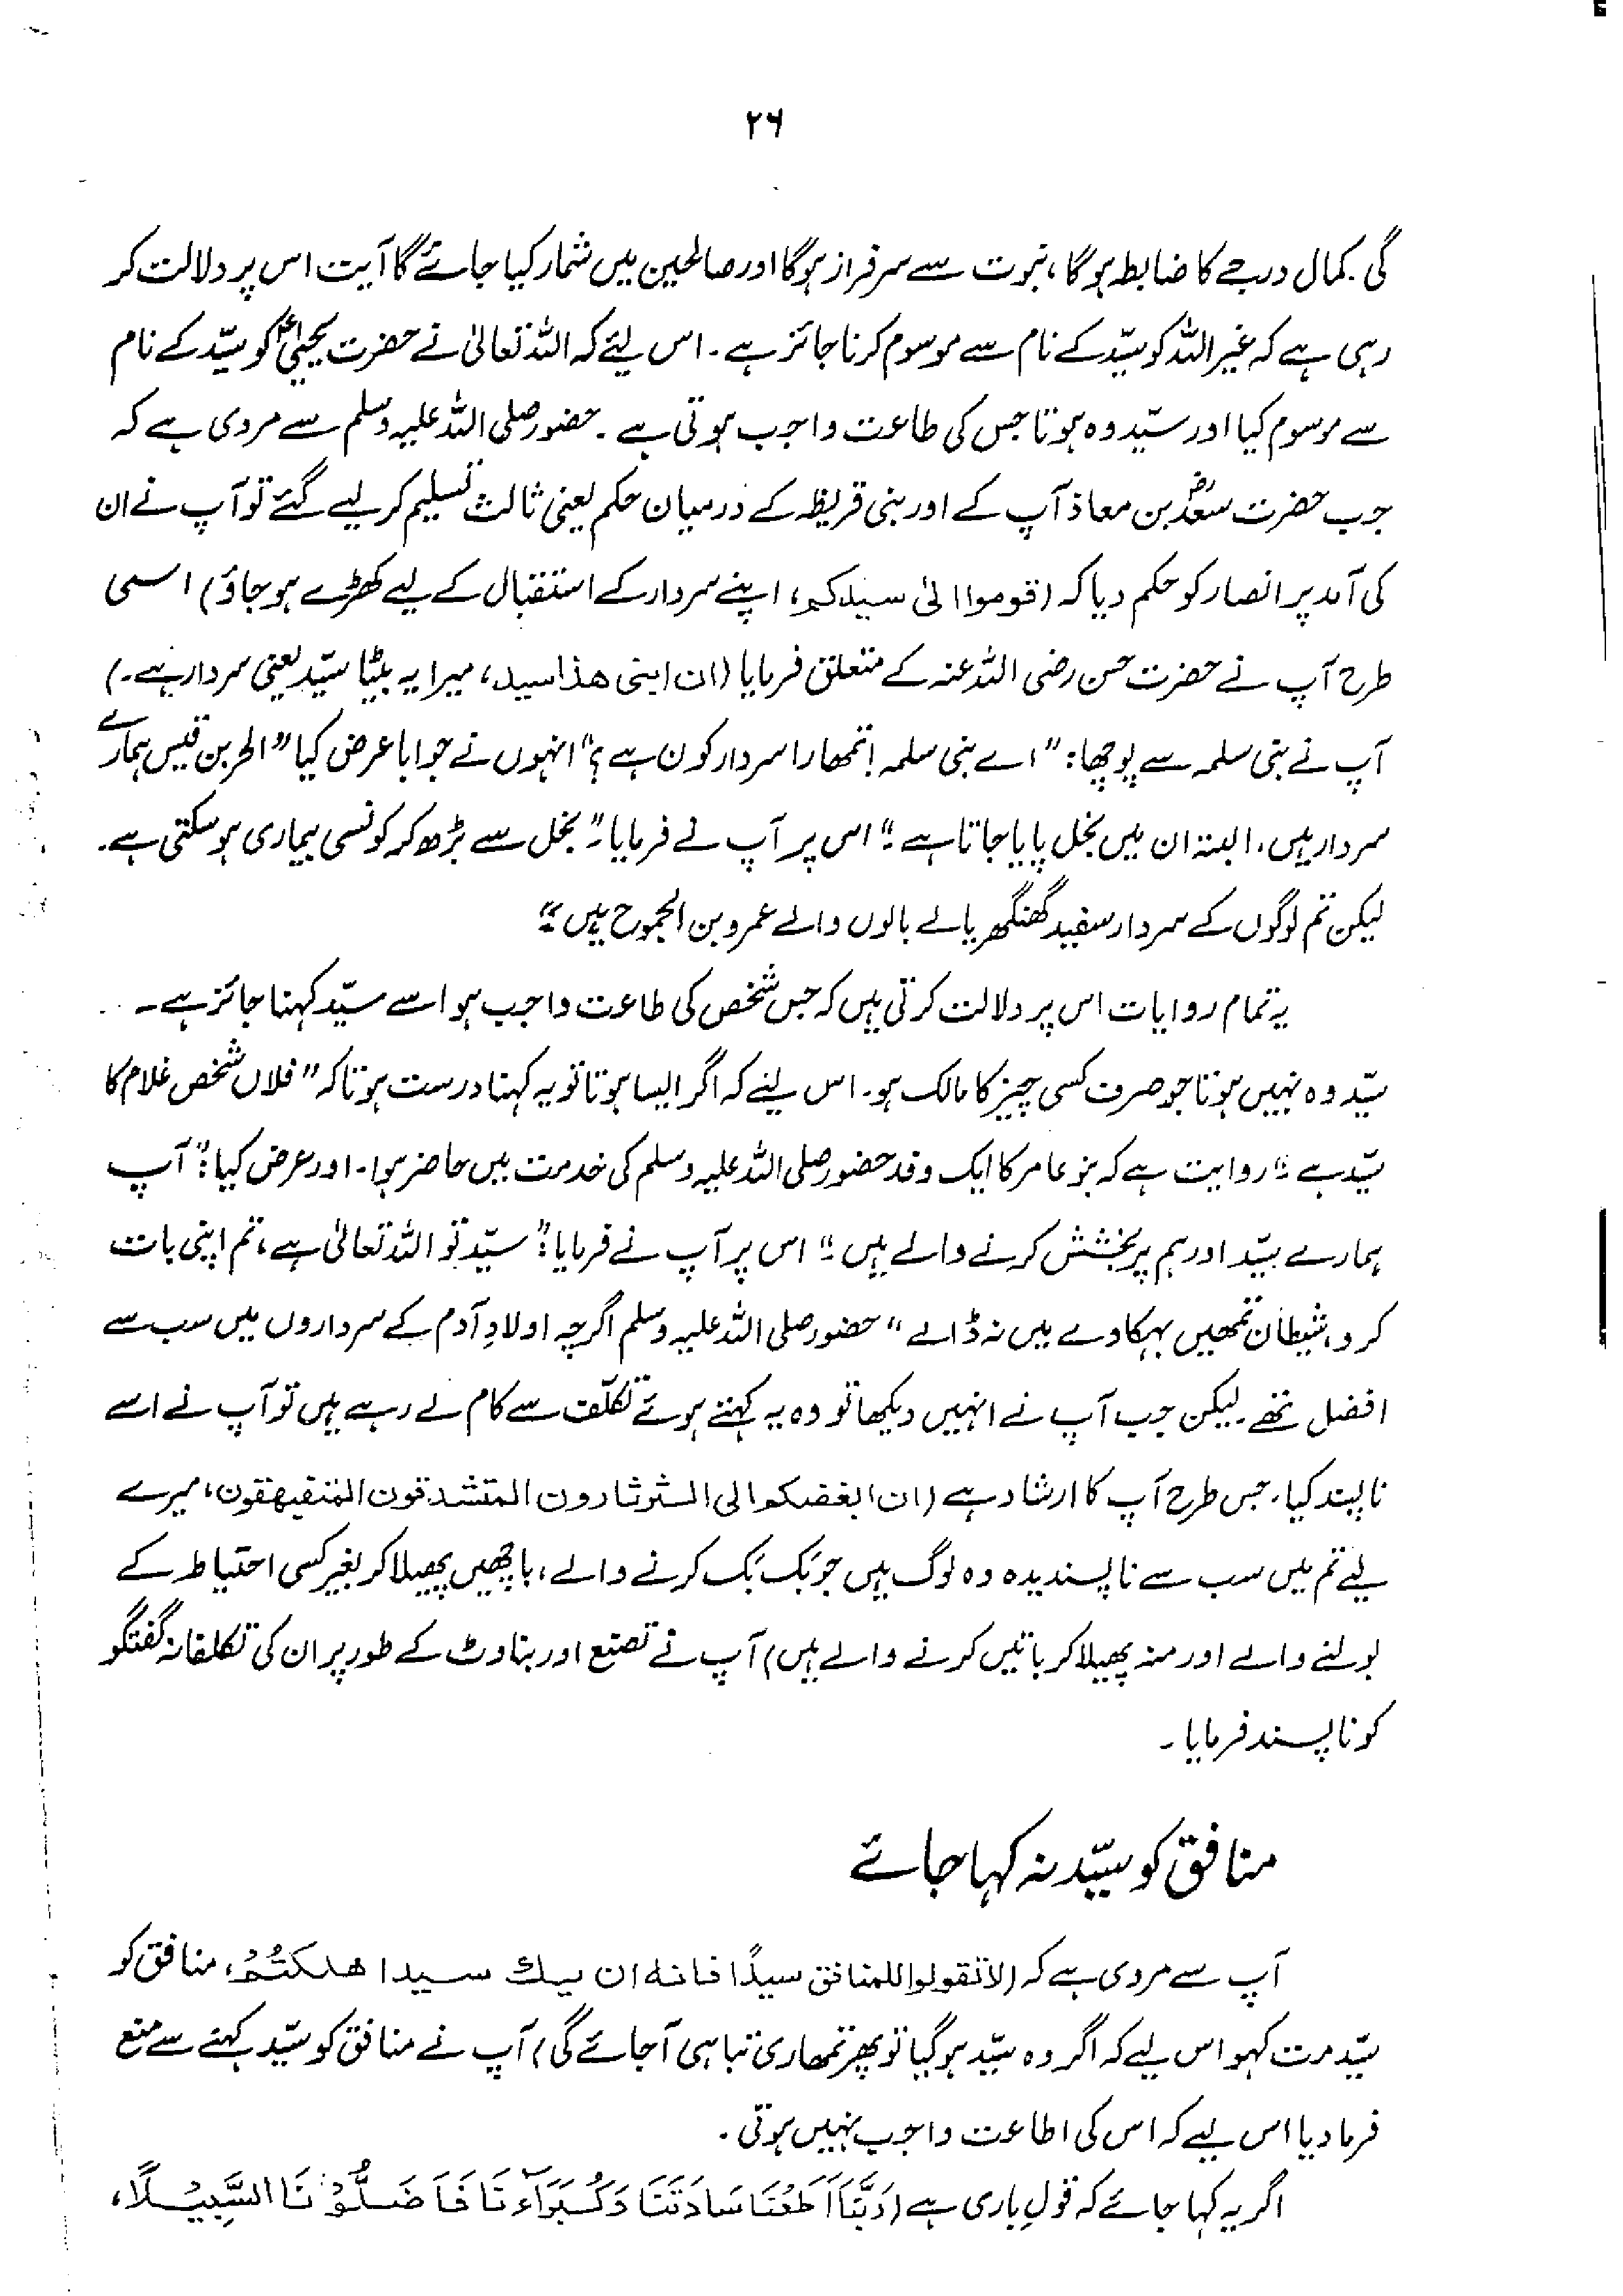 ۲۶
گی۔ کمال درجے کا ضابط ہوگا، نبوت سے سرفراز ہوگا اور صالحین میں شمار کیا جائے گا آیت اس پر دلالت کر
رہی ہے کہ غیر اللہ کو سیّد کے نام سے موسوم کرنا جائز ہے۔ اس لیئے کہ اللہ تعالیٰ نے حضرت یحییٰؑ کو سیّد کے نام
سے موسوم کیا اور سیّد وہ ہوتا جس کی طاعت واجب ہوتی ہے۔ حضور صلی اللہ علیہ وسلم سے مروی ہے کہ
جب حضرت سعدؓ بن معاذ آپ کے اور بنی قریظہ کے درمیان حکم یعنی ثالث تسلیم کر لیے گئے تو آپ نے ان
کی آمد پر انصار کو حکم دیا کہ (قوموا الیٰ سیدکم، اپنے سردار کے استقبال کے لیے کھڑے ہو جاؤ) اسی
طرح آپ نے حضرت حسن رضی اللہ عنہ کے متعلق فرمایا (ان ابنی ھذا سید، میرا یہ بیٹا سیّد یعنی سردار ہے۔)
آپ نے بنی سلمہ سے پوچھا: "اے بنی سلمہ! تمھارا سردار کون ہے؟" انہوں نے جواباً عرض کیا "الحر بن قیس ہمارے
سردار ہیں۔ البتہ ان میں بخل پایا جاتا ہے"۔ اس پر آپ نے فرمایا۔ "بخل سے بڑھ کر کونسی بیماری ہو سکتی ہے۔
لیکن تم لوگوں کے سردار سفید گھنگھریالے بالوں والے عمرو بن الجموح ہیں۔"
یہ تمام روایات اس پر دلالت کرتی ہیں کہ جس شخص کی طاعت واجب ہو اسے سیّد کہنا جائز ہے۔
سیّد وہ نہیں ہوتا جو صرف کسی چیز کا مالک ہو۔ اس لیئے کہ اگر ایسا ہوتا تو یہ کہنا درست ہوتا کہ "فلاں شخص غلام کا
سیّد ہے"۔ روایت ہے کہ بنو عامر کا ایک وفد حضور صلی اللہ علیہ وسلم کی خدمت میں حاضر ہوا۔ اور عرض کیا: "آپ
ہمارے سیّد اور ہم پر بخشش کرنے والے ہیں"۔ اس پر آپ نے فرمایا: "سیّد تو اللہ تعالیٰ ہے، تم اپنی بات
کرو، شیطان تمھیں بہکاوے میں نہ ڈالے" حضور صلی اللہ علیہ وسلم اگرچہ اولادِ آدم کے سرداروں میں سب سے
افضل تھے۔ لیکن جب آپ نے انہیں دیکھا تو وہ یہ کہتے ہوئے تکلّف سے کام لے رہے ہیں تو آپ نے اسے
ناپسند کیا۔ جس طرح آپ کا ارشاد ہے (ان ابغضکم الی الثرثارون المتشدقون المتفیھقون، میرے
لیے تم میں سب سے ناپسندیدہ وہ لوگ ہیں جو بَک بَک کرنے والے، باچھیں پھیلا کر بغیر کسی احتیاط کے
بولنے والے اور منہ پھیلا کر باتیں کرنے والے ہیں) آپ نے تصنع اور بناوٹ کے طور پر ان کی تکلفانہ گفتگو
کو ناپسند فرمایا۔
منافق کو سیّد نہ کہا جائے
آپ سے مروی ہے کہ (لا تقولوا للمنافق سیدًا فانہ ان یک سیدا ھلکتُمْ، منافق کو
سیّد مت کہو اس لیے کہ اگر وہ سیّد ہو گیا تو پھر تمھاری تباہی آ جائے گی) آپ نے منافق کو سیّد کہنے سے منع
فرما دیا اس لیے کہ اس کی اطاعت واجب نہیں ہوتی۔
اگر یہ کہا جائے کہ قولِ باری ہے (رَبَّنَا اَطَعْنَا سَادَتَنَا وَكُبَرَآءَنَا فَاَضَلُّوْنَا السَّبِيْلَا،